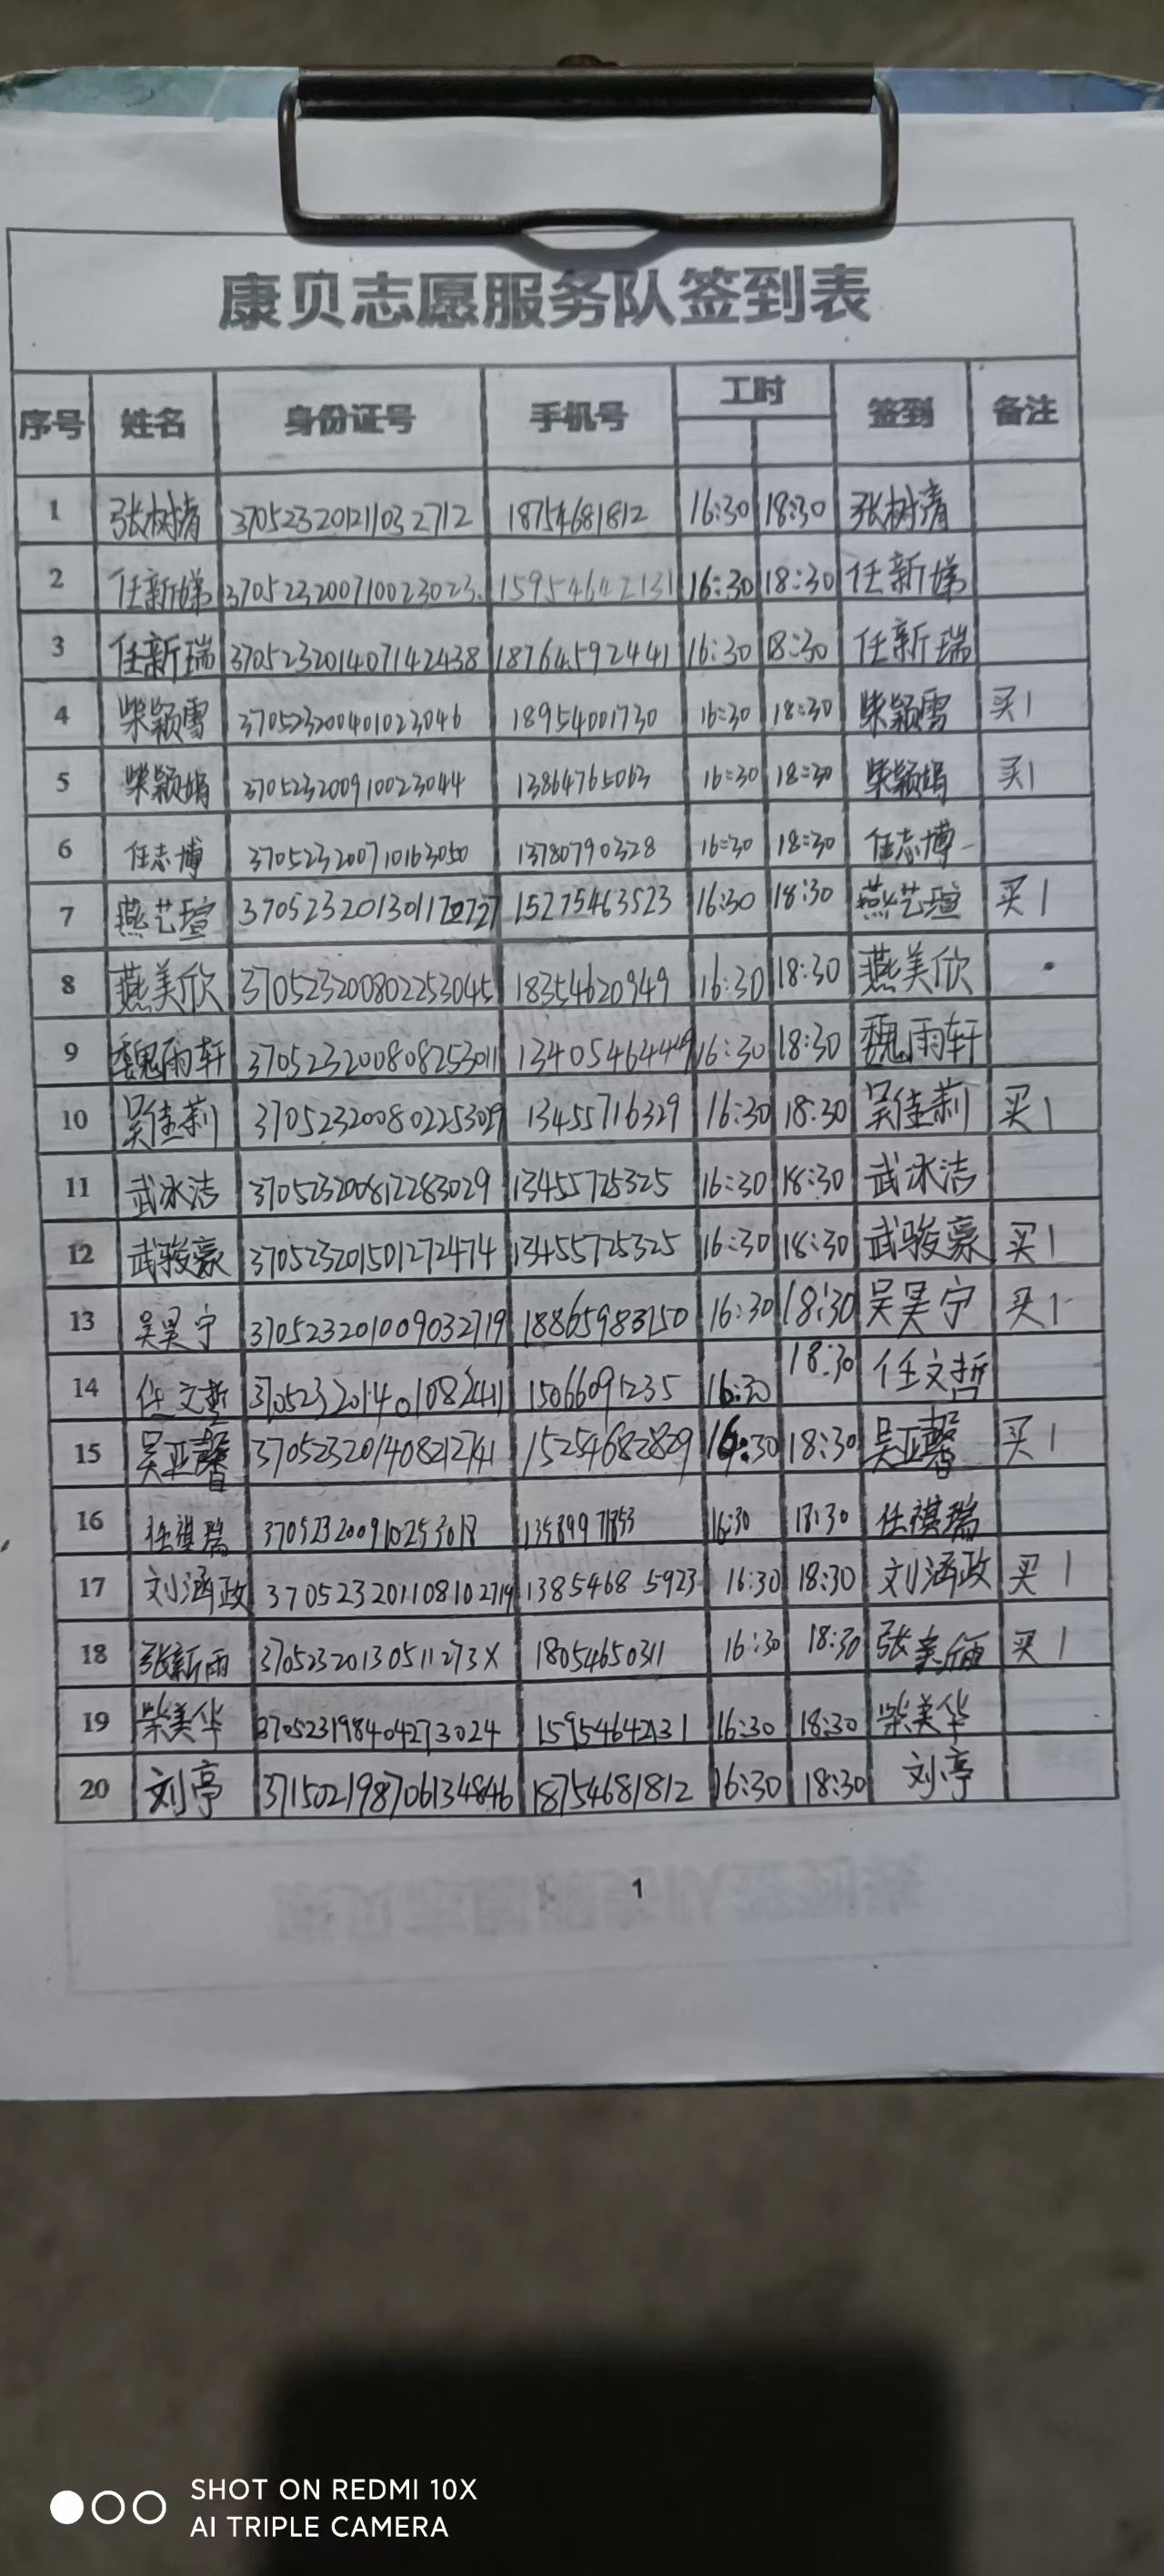 康贝志愿服务队签到表
序号 姓名 身份证号 手机号 工时 签到 备注
1 张树清 370523201211032712 18754681812 16:30 18:30 张树清
2 任新娣 370523200710023023 15954642131 16:30 18:30 任新娣
3 任新瑞 370523201407142438 18764592441 16:30 18:30 任新瑞
4 柴颖雪 370523200401023046 18954001730 16:30 18:30 柴颖雪 买1
5 柴颖娟 370523200910023044 13864765063 16:30 18:30 柴颖娟 买1
6 任志博 370523200710163050 13780790328 16:30 18:30 任志博
7 燕艺瑄 370523201301170727 15275463523 16:30 18:30 燕艺瑄 买1
8 燕美欣 370523200802253045 18354620949 16:30 18:30 燕美欣
9 魏雨轩 370523200808253011 13405464449 16:30 18:30 魏雨轩
10 吴佳莉 370523200802253029 13455716329 16:30 18:30 吴佳莉 买1
11 武冰洁 370523200812283029 13455725325 16:30 18:30 武冰洁
12 武骏豪 370523201501272474 13455725325 16:30 18:30 武骏豪 买1
13 吴昊宁 370523201009032719 18865983150 16:30 18:30 吴昊宁 买1
14 任文哲 370523201401082411 15066091235 16:30 18:30 任文哲
15 吴亚馨 370523201408212741 15254682829 16:30 18:30 吴亚馨 买1
16 任祺瑞 370523200910253018 13589971853 16:30 18:30 任祺瑞
17 刘涵政 370523201108102719 13854685923 16:30 18:30 刘涵政 买1
18 张新雨 37052320130511273X 18054650311 16:30 18:30 张新雨 买1
19 柴美华 370523198404273024 15954642131 16:30 18:30 柴美华
20 刘亭 371502198706134846 18754681812 16:30 18:30 刘亭
1
SHOT ON REDMI 10X
AI TRIPLE CAMERA